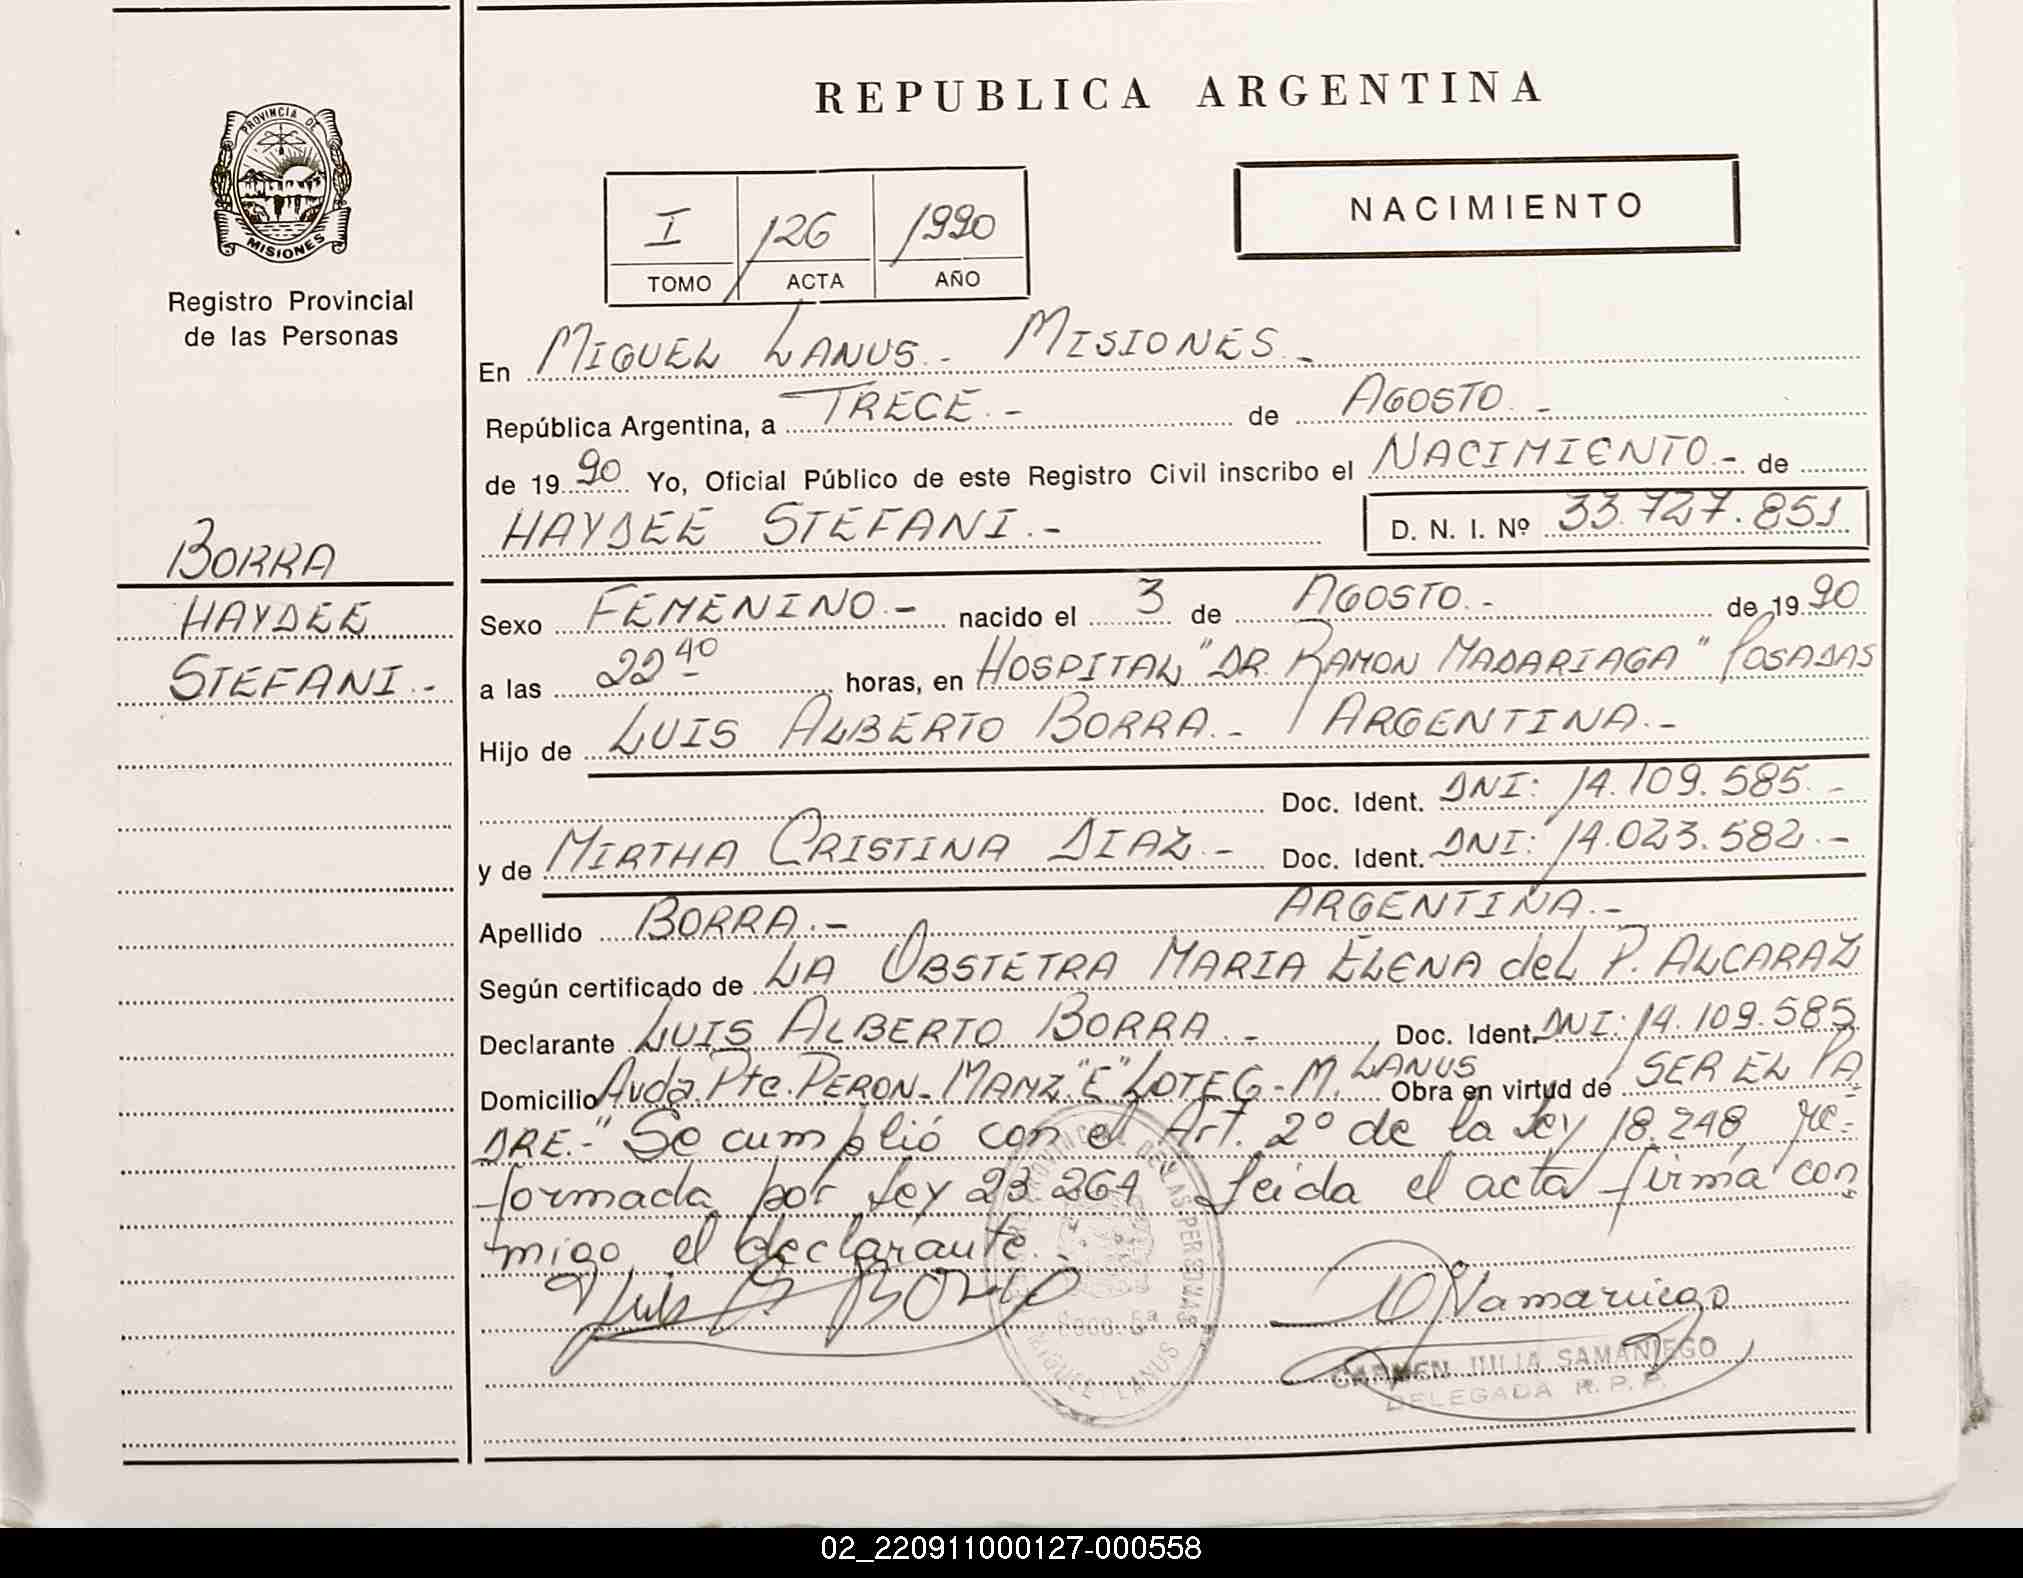 REPUBLICA ARGENTINA
PROVINCIA DE
MISIONES
Registro Provincial
de las Personas
I 126 1990
TOMO ACTA AÑO
NACIMIENTO
En MIGUEL LANUS.- MISIONES.-
República Argentina, a TRECE.- de AGOSTO.-
de 1990 Yo, Oficial Público de este Registro Civil inscribo el NACIMIENTO.- de
HAYDEE STEFANI.- D. N. I. Nº 33.727.851
BORRA
HAYDEE
STEFANI.-
Sexo FEMENINO.- nacido el 3 de AGOSTO.- de 1990
a las 22 40 horas, en HOSPITAL "DR. RAMON MADARIAGA" POSADAS
Hijo de LUIS ALBERTO BORRA.- ARGENTINA.-
Doc. Ident. DNI: 14.109.585.-
y de MIRTHA CRISTINA DIAZ.- Doc. Ident. DNI: 14.023.582.-
ARGENTINA.-
Apellido BORRA.-
Según certificado de LA OBSTETRA MARIA ELENA del P. ALCARAZ
Declarante LUIS ALBERTO BORRA.- Doc. Ident. DNI: 14.109.585
Domicilio Avda. Pte. PERON- MANZ "E" LOTE 6- M. LANUS Obra en virtud de SER EL PA
DRE.-" Se cumplió con el Art. 2º de la Ley 18.248, re-
formada por Ley 23.264 Leida el acta firma con
migo el declarante.
Luis A Borra
CARMEN JULIA SAMANIEGO
DELEGADA R. P. P.
MIGUEL LANUS
02_220911000127-000558